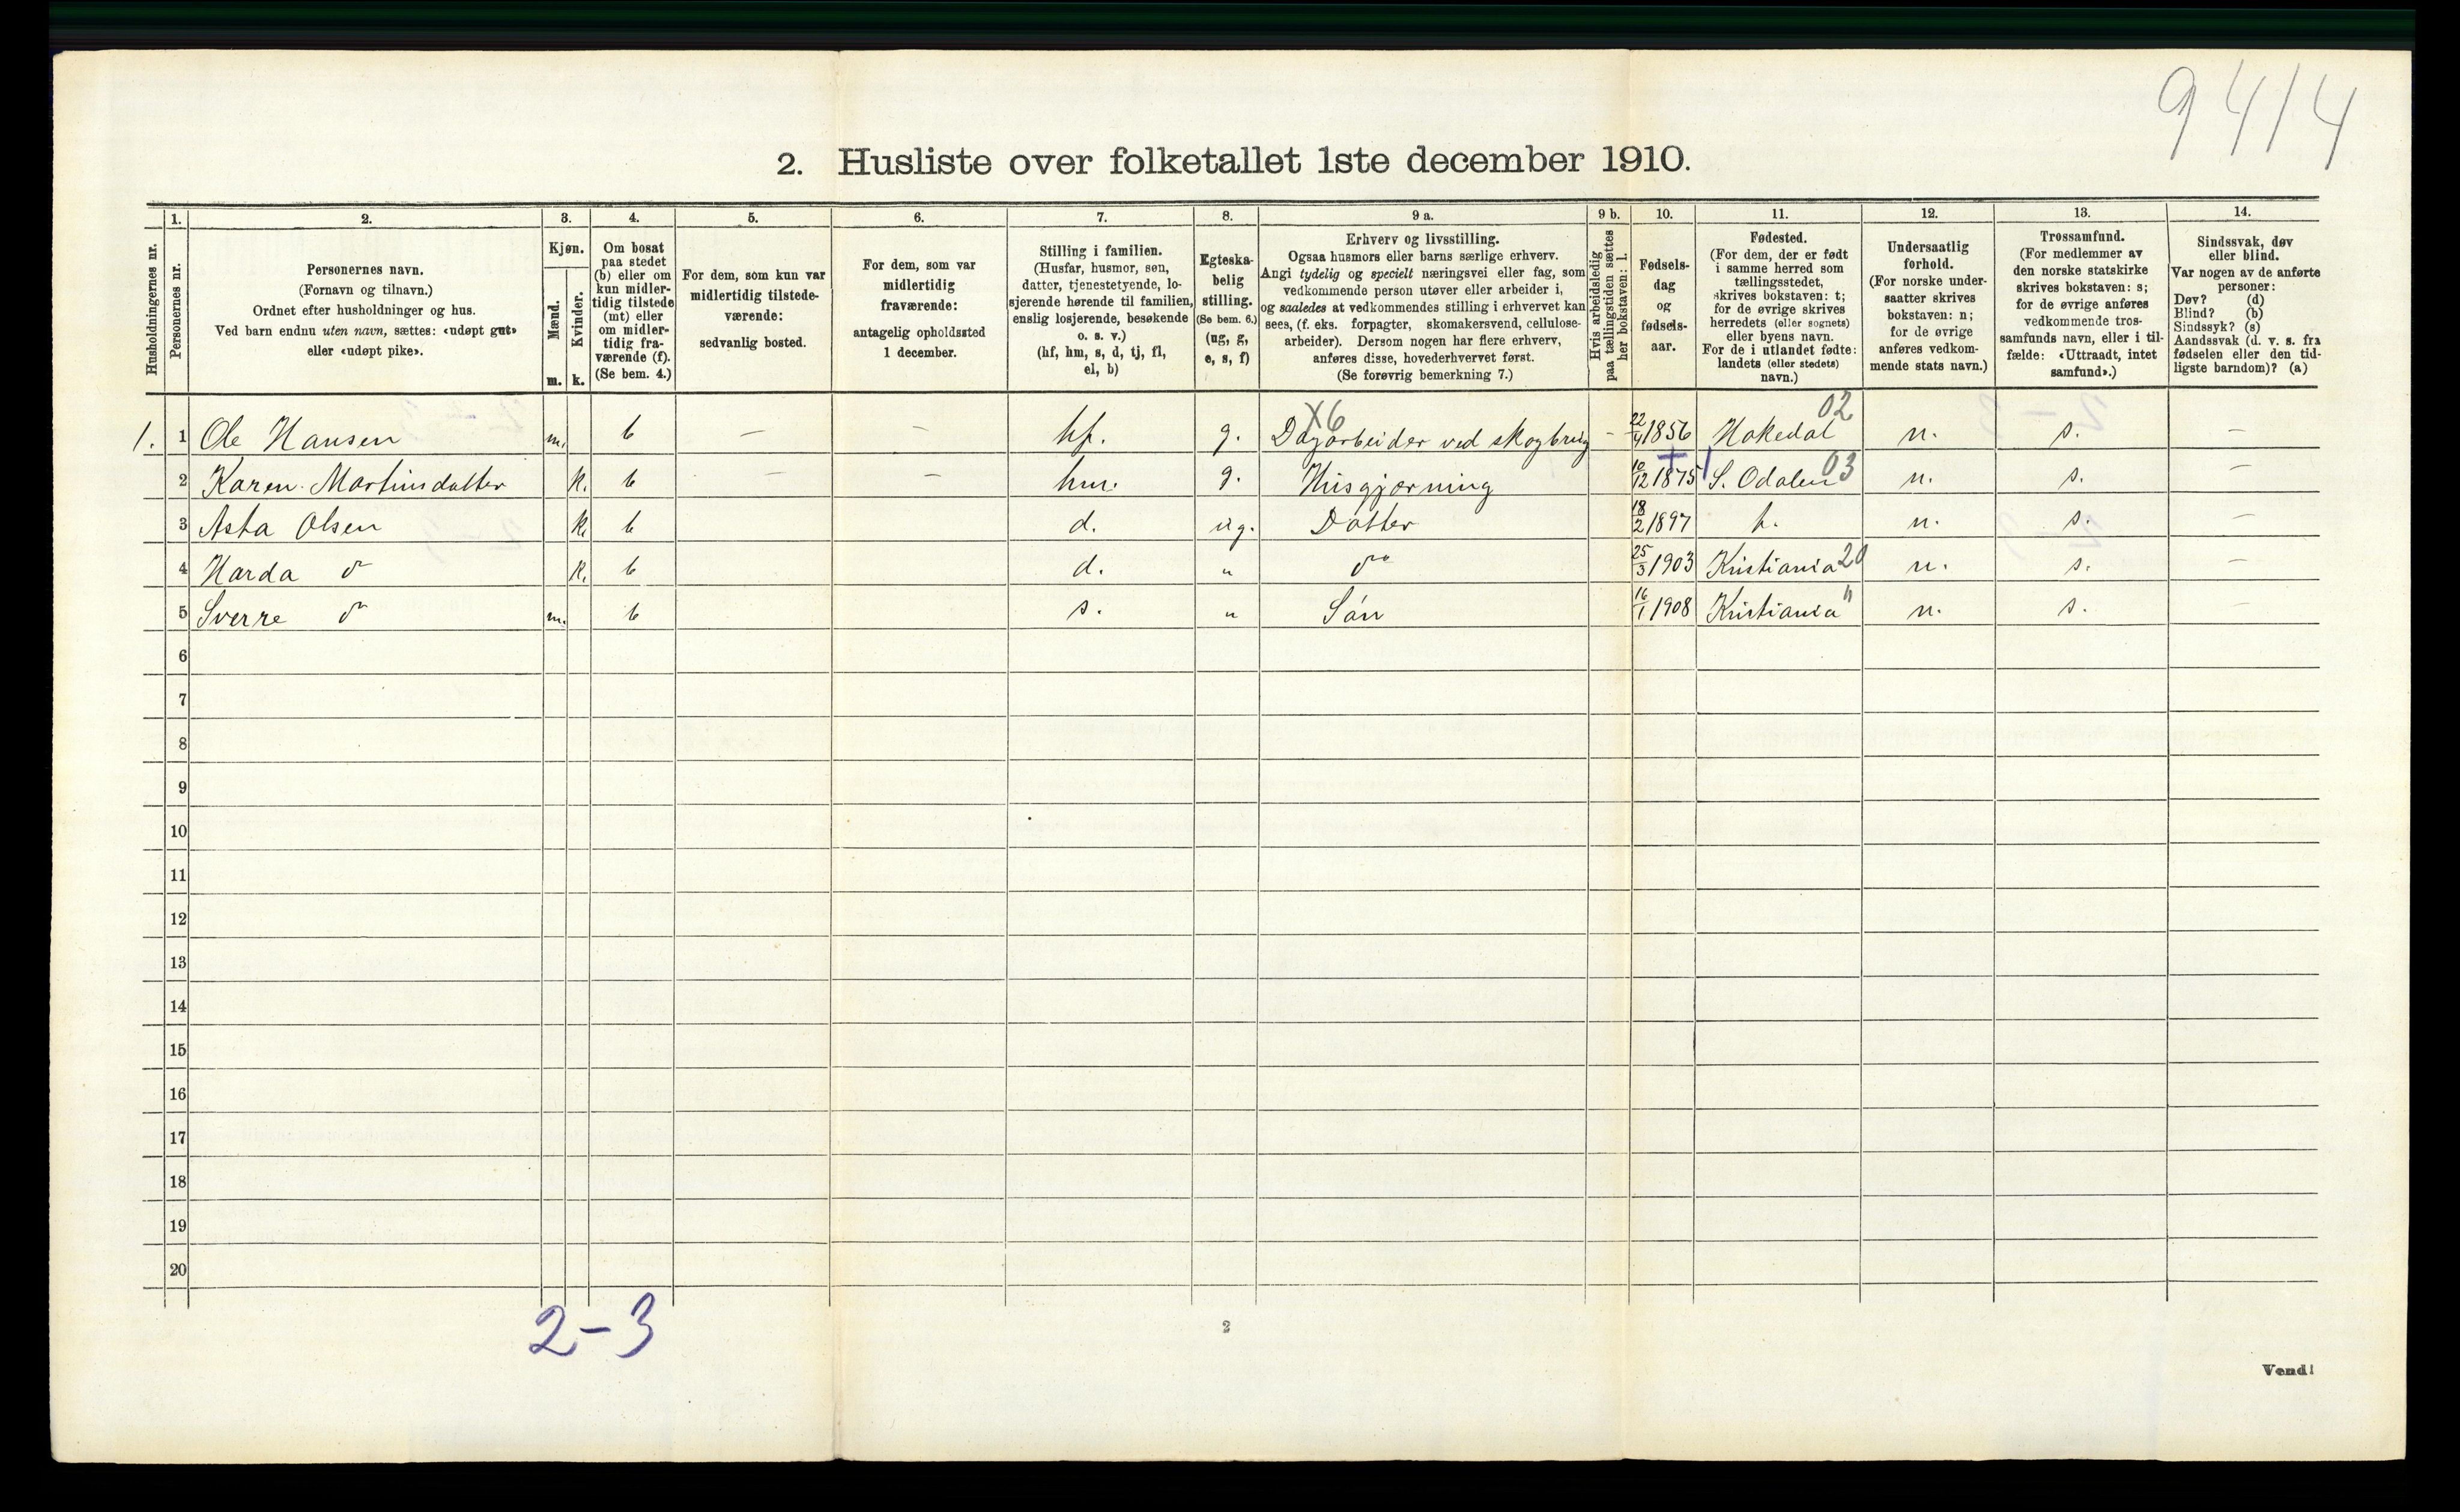 9414
2. Husliste over folketallet 1ste december 1910.
Husholdningernes nr.
1. Personernes nr.
2. Personernes navn.
(Fornavn og tilnavn.)
Ordnet efter husholdninger og hus.
Ved barn endnu uten navn, sættes: «udøpt gut»
eller «udøpt pike».
3. Kjøn.
Mænd. m.
Kvinder. k.
4. Om bosat
paa stedet
(b) eller om
kun midler-
tidig tilstede
(mt) eller
om midler-
tidig fra-
værende (f).
(Se bem. 4.)
5. For dem, som kun var
midlertidig tilstede-
værende:
sedvanlig bosted.
6. For dem, som var
midlertidig
fraværende:
antagelig opholdssted
1 december.
7. Stilling i familien.
(Husfar, husmor, søn,
datter, tjenestetyende, lo-
sjerende hørende til familien,
enslig losjerende, besøkende
o. s. v.)
(hf, hm, s, d, tj, fl,
el, b)
8. Egteska-
belig
stilling.
(Se bem. 6.)
(ug, g,
e, s, f)
9 a. Erhverv og livsstilling.
Ogsaa husmors eller barns særlige erhverv.
Angi tydelig og specielt næringsvei eller fag, som
vedkommende person utøver eller arbeider i,
og saaledes at vedkommendes stilling i erhvervet kan
sees, (f. eks. forpagter, skomakersvend, cellulose-
arbeider). Dersom nogen har flere erhverv,
anføres disse, hovederhvervet først.
(Se forøvrig bemerkning 7.)
9 b. Hvis arbeidsledig
paa tællingstiden sættes
her bokstaven: l.
10. Fødsels-
dag
og
fødsels-
aar.
11. Fødested.
(For dem, der er født
i samme herred som
tællingsstedet,
skrives bokstaven: t;
for de øvrige skrives
herredets (eller sognets)
eller byens navn.
For de i utlandet fødte:
landets (eller stedets)
navn.)
12. Undersaatlig
forhold.
(For norske under-
saatter skrives
bokstaven: n;
for de øvrige
anføres vedkom-
mende stats navn.)
13. Trossamfund.
(For medlemmer av
den norske statskirke
skrives bokstaven: s;
for de øvrige anføres
vedkommende tros-
samfunds navn, eller i til-
fælde: «Uttraadt, intet
samfund».)
14. Sindssvak, døv
eller blind.
Var nogen av de anførte
personer:
Døv? (d)
Blind? (b)
Sindssyk? (s)
Aandssvak (d. v. s. fra
fødselen eller den tid-
ligste barndom)? (a)
X6 02
1. 1 Ole Hansen m. b — — hf. g. Dagarbeider ved skogbrug - 22/4 1856 Hakedal n. s. —
2 Karen Martinsdatter k. b — — hm. g. Husgjærning 10/12 1875 S. Odalen 03 n. s. —
3 Asta Olsen k. b d. ug. Datter 18/2 1897 t. n. s. —
4 Harda do k. b d. " do 25/3 1903 Kristiania 20 n. s. —
5 Sverre do m. b s. " Søn 16/1 1908 Kristiania " n. s. —
6
7
8
9
10
11
12
13
14
15
16
17
18
19
20
2-3
2
Vend!